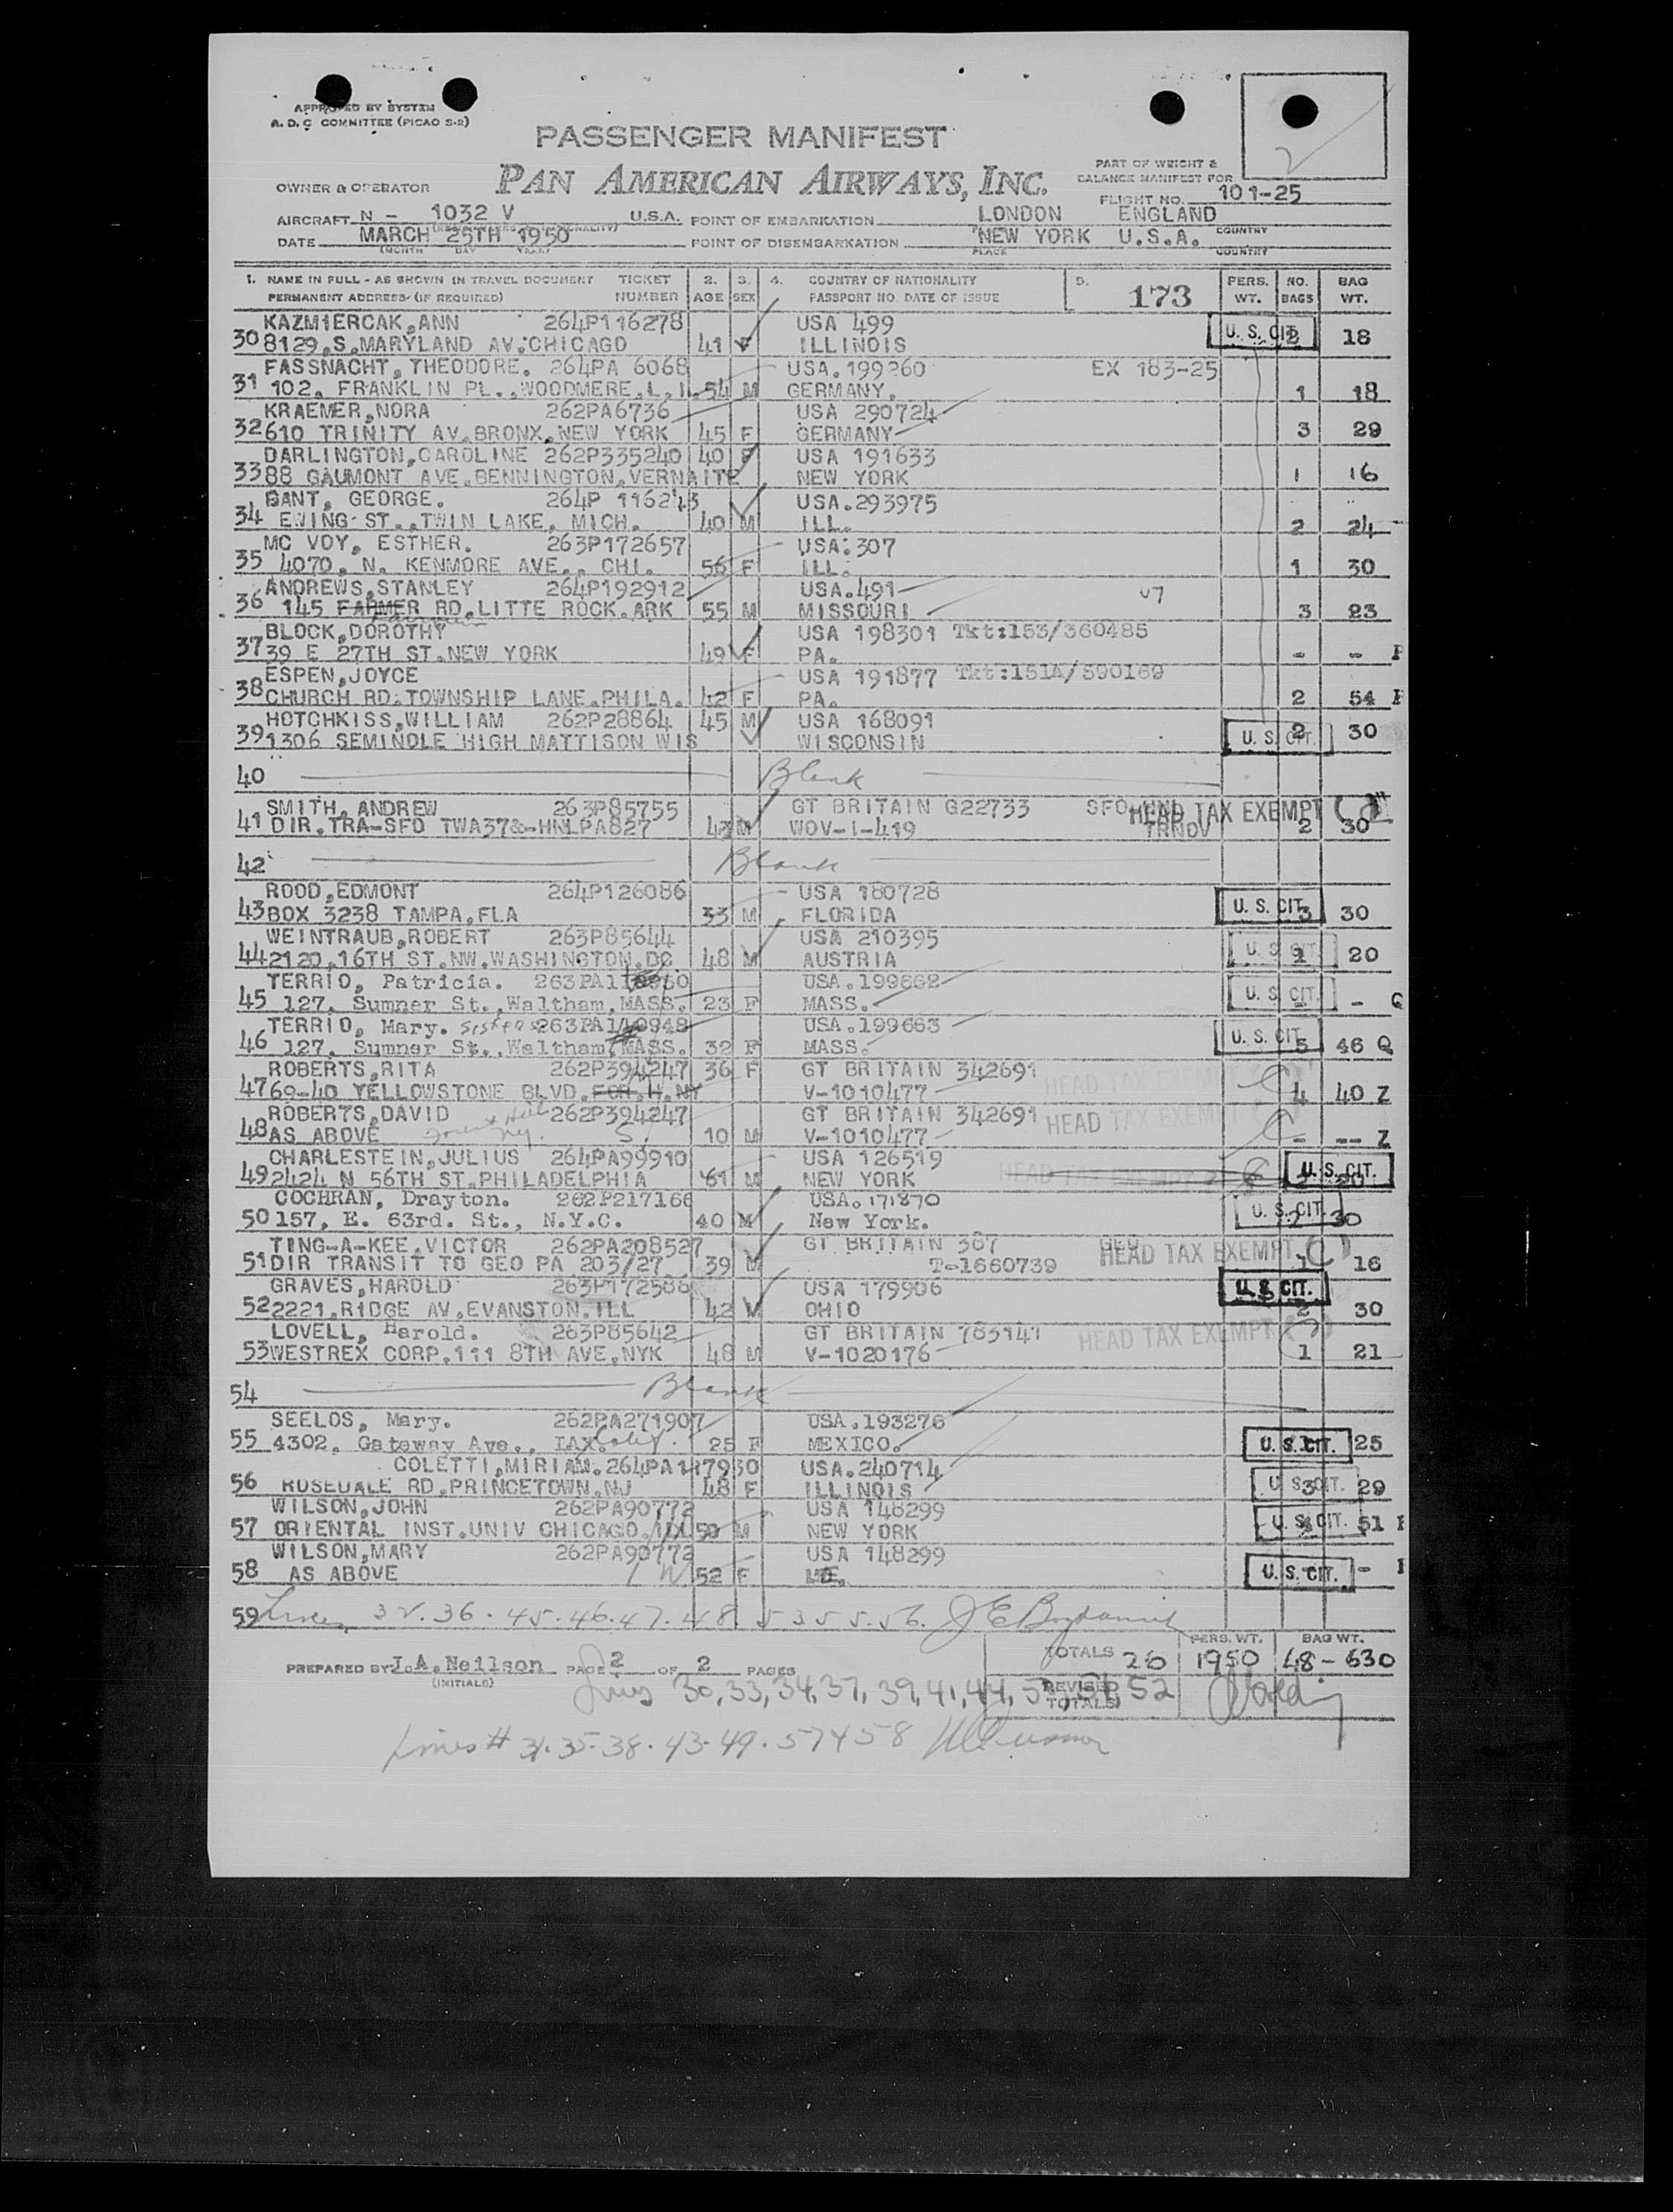 APPROVED BY SYSTEM
A. D. C. COMMITTEE (PICAO S-2)
PASSENGER MANIFEST
PAN AMERICAN AIRWAYS, INC.
PART OF WEIGHT &
BALANCE MANIFEST FOR
OWNER & OPERATOR
FLIGHT NO. 101-25
AIRCRAFT N - 1032 V U.S.A. POINT OF EMBARKATION LONDON ENGLAND
COUNTRY
DATE MARCH 25TH 1950 POINT OF DISEMBARKATION NEW YORK U.S.A.
(MONTH DAY YEAR) PLACE COUNTRY
1. NAME IN FULL - AS SHOWN IN TRAVEL DOCUMENT TICKET 2. 3. 4. COUNTRY OF NATIONALITY 5. PERS. NO. BAG
PERMANENT ADDRESS (IF REQUIRED) NUMBER AGE SEX PASSPORT NO. DATE OF ISSUE 173 WT. BAGS WT.
KAZMIERCAK, ANN 264P116278 USA 499 U. S. CIT.
30 8129.S.MARYLAND AV.CHICAGO 41 F ILLINOIS 2 18
FASSNACHT, THEODORE. 264PA 6068 USA.199260 EX 183-25
31 102. FRANKLIN PL.,WOODMERE,L,I. 54 M GERMANY. 1 18
KRAEMER,NORA 262PA6736 USA 290724
32 610 TRINITY AV.BRONX.NEW YORK 45 F GERMANY 3 29
DARLINGTON,CAROLINE 262P335240 40 F USA 191633
33 88 GAUMONT AVE.BENNINGTON.VERNAITE NEW YORK 1 16
GANT, GEORGE. 264P 116243 USA.293975
34 EWING ST..TWIN LAKE. MICH. 40 M ILL. 2 24
MC VOY, ESTHER. 263P172657 USA.307
35 4070. N. KENMORE AVE., CHI. 56 F ILL. 1 30
ANDREWS,STANLEY 264P192912 USA.491
36 145 FARMER RD.LITTE ROCK.ARK 55 M MISSOURI 3 23
BLOCK,DOROTHY USA 198301 Tkt:153/360485
37 39 E 27TH ST.NEW YORK 49 F PA. - --
ESPEN,JOYCE USA 191877 Tkt:151A/590169
38 CHURCH RD.TOWNSHIP LANE.PHILA. 42 F PA. 2 54
HOTCHKISS,WILLIAM 262P28864 45 M USA 168091
39 1306 SEMINOLE HIGH MATTISON WIS WISCONSIN U. S. CIT. 2 30
40 Blank
SMITH, ANDREW 263P85755 GT BRITAIN G22733 HEAD TAX EXEMPT
41 DIR.TRA-SFO TWA37&-HNLPA827 43 M WOV-I-419 2 30
42 Blank
ROOD,EDMONT 264P126086 USA 180728
43 BOX 3238 TAMPA.FLA 33 M FLORIDA U. S. CIT. 3 30
WEINTRAUB,ROBERT 263P85644 USA 210395
44 2120.16TH ST.NW.WASHINGTON.DC 48 M AUSTRIA U. S. CIT. 1 20
TERRIO, Patricia. USA.199662
45 127. Sumner St.,Waltham,MASS. 23 F MASS. U. S. CIT. - Q
TERRIO, Mary. sisters USA.199663
46 127. Sumner St.,Waltham,MASS. 32 F MASS. U. S. CIT. 5 46 Q
ROBERTS,RITA 262P394247 36 F GT BRITAIN 342691
47 69-40 YELLOWSTONE BLVD.FOR.H.NY V-1010477 HEAD TAX EXEMPT 4 40 Z
ROBERTS,DAVID 262P394247 GT BRITAIN 342691 HEAD TAX EXEMPT
48 AS ABOVE Forest Hill NY. 10 M V-1010477 - -- Z
CHARLESTEIN,JULIUS 264PA99910 USA 126519
49 2424 N 56TH ST.PHILADELPHIA 61 M NEW YORK HEAD TAX EXEMPT U. S. CIT. 2 20
COCHRAN, Drayton. 262P217166 USA.171870
50 157, E. 63rd. St., N.Y.C. 40 M New York. U. S. CIT. 2 30
TING-A-KEE,VICTOR 262PA208527 GT BRITAIN 387 GEO
51 DIR TRANSIT TO GEO PA 203/27 39 M T-1660739 HEAD TAX EXEMPT 1 16
GRAVES,HAROLD 263P172586 USA 179906 U. S. CIT.
52 2221.RIDGE AV.EVANSTON.ILL 42 M OHIO 2 30
LOVELL, Harold. 263P85642 GT BRITAIN 785141 HEAD TAX EXEMPT
53 WESTREX CORP.111 8TH AVE.NYK 48 M V-1020176 1 21
54 Blank
SEELOS, Mary. 262PA271907 USA.193276
55 4302. Gateway Ave., LAX. Calif. 25 F MEXICO. U. S. CIT. 25
COLETTI,MIRIAM.264PA117930 USA.240714
56 ROSEDALE RD.PRINCETOWN.NJ 48 F ILLINOIS U. S. CIT. 3 29
WILSON,JOHN 262PA90772 USA 148299
57 ORIENTAL INST.UNIV CHICAGO.ILL 50 M NEW YORK U. S. CIT. 51
WILSON,MARY 262PA90772 USA 148299
58 AS ABOVE 52 F ME. U. S. CIT. -
59 Lines 32.36.45.46.47.48.53 55.56.
TOTALS 26 PERS. WT. 1950 BAG WT. 48-630
PREPARED BY J.A.Neilson PAGE 2 OF 2 PAGES
(INITIALS)
REVISED TOTALS
Lines 30,33,34,37,39,41,44, 52
Lines # 31.35.38.43.49.57 & 58